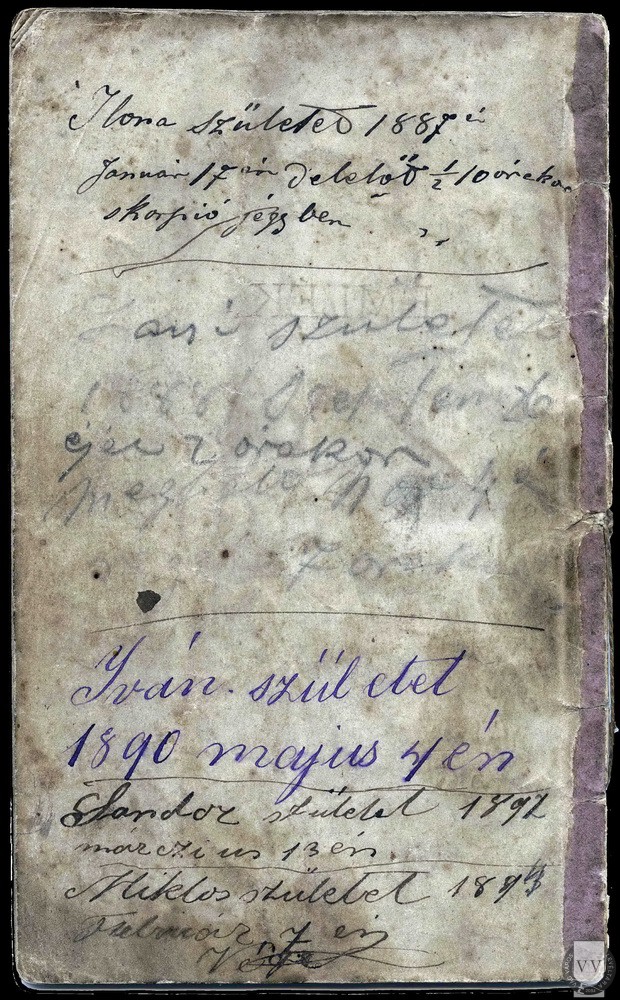 Ilona születed 1887 én
Január 17 én delelőt ½ 10 órakor
skorpió jégyben
Jani születet
1888 Szeptemb
éjel 2 órakor
meghalt
7 órakor
Iván. született
1890 majus 4 én
Sandor született 1892
márczius 13 én
Miklos született 1894
Február 7 én
VV